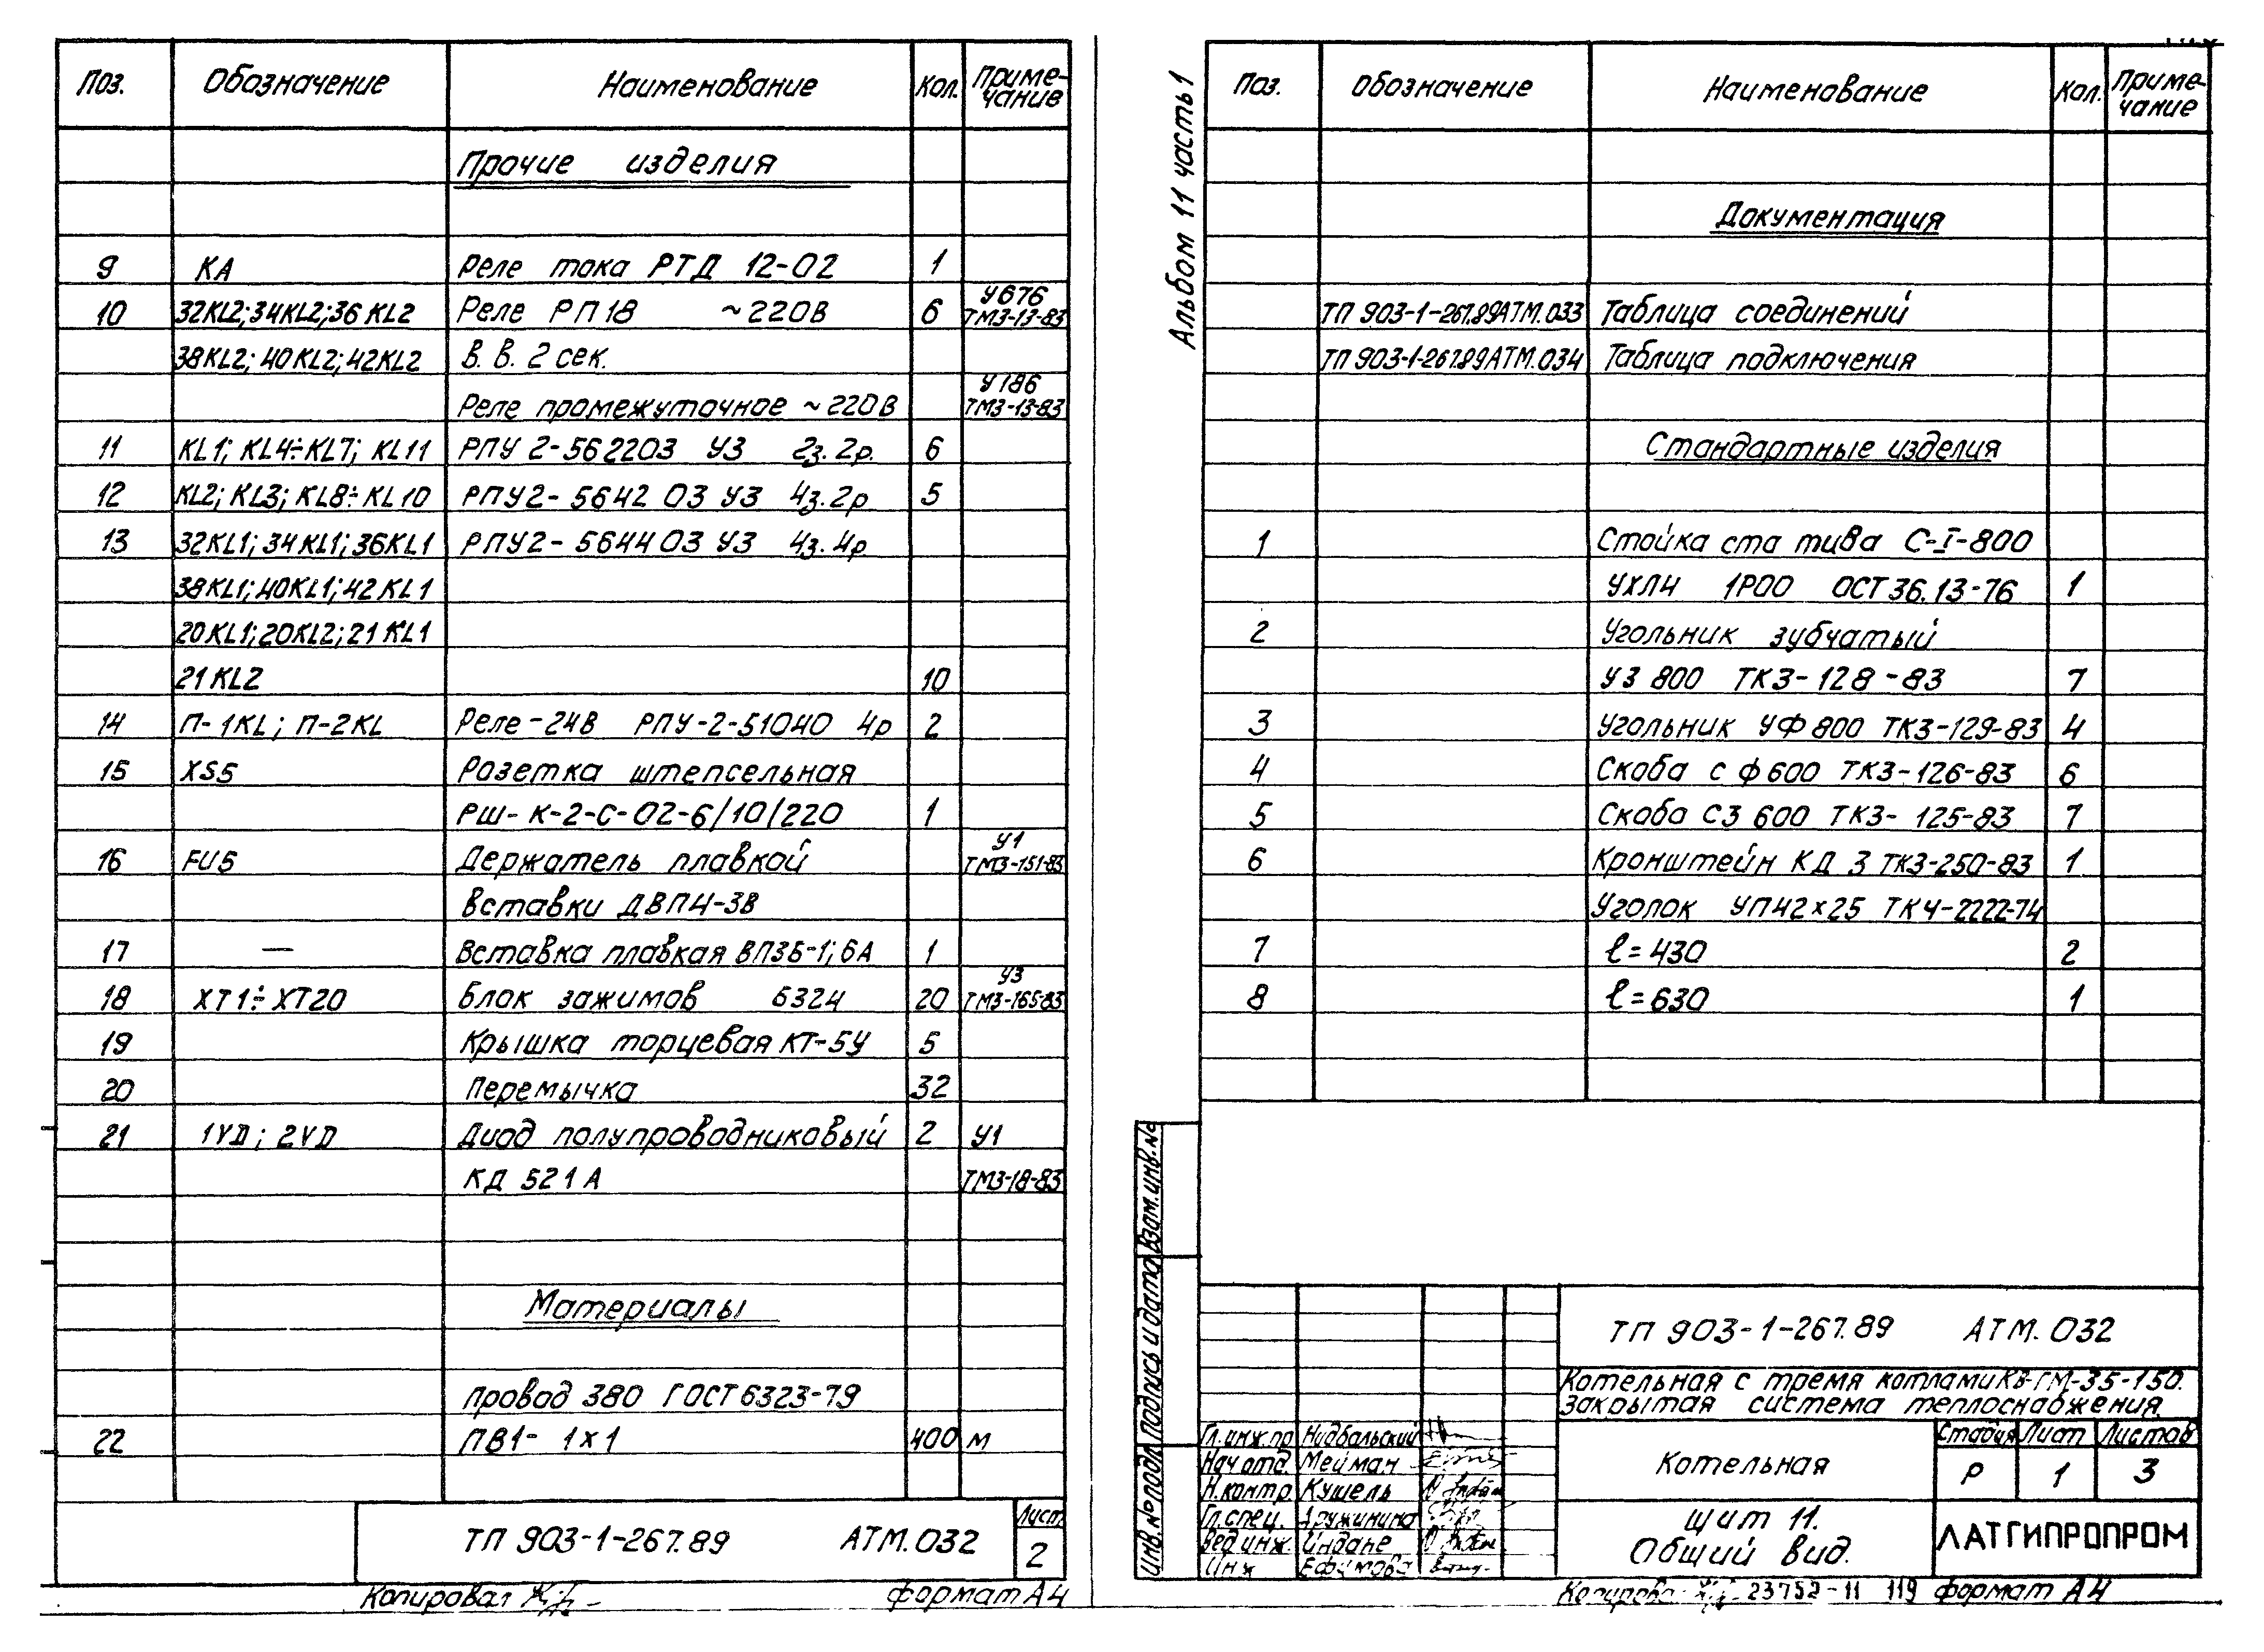 Поз. Обозначение Наименование Кол. Приме-чание
Прочие изделия
9 КА Реле тока РТД 12-02 1
У676
10 32KL2; 34KL2; 36KL2 Реле РП18 ~220В 6 ТМ3-13-83
38KL2; 40KL2; 42KL2 В.В. 2 сек.
У186
Реле промежуточное ~220В ТМ3-13-83
11 KL1; KL4÷KL7; KL11 РПУ2-562203 У3 2з.2р. 6
12 KL2; KL3; KL8÷KL10 РПУ2-564203 У3 4з.2р 5
13 32KL1; 34KL1; 36KL1 РПУ2-564403 У3 4з.4р
38KL1; 40KL1; 42KL1
20KL1; 20KL2; 21KL1
21KL2 10
14 П-1KL; П-2KL Реле-24В РПУ-2-51040 4р 2
15 XS5 Розетка штепсельная
РШ-К-2-С-02-6/10/220 1
У1
16 FU5 Держатель плавкой ТМ3-151-83
вставки ДВП4-3В
17 — Вставка плавкая ВП3Б-1; 6А 1
У3
18 ХТ1÷ХТ20 Блок зажимов Б324 20 ТМ3-165-83
19 Крышка торцевая КТ-5У 5
20 Перемычка 32
21 1VD; 2VD Диод полупроводниковый 2 У1
КД 521А ТМ3-18-83
Материалы
Провод 380 ГОСТ 6323-79
22 ПВ1- 1х1 400 м
ТП 903-1-267.89 АТМ.032
Лист
2
Копировал
формат А4
Альбом 11 часть 1
Поз. Обозначение Наименование Кол. Приме-чание
Документация
ТП 903-1-267.89АТМ.033 Таблица соединений
ТП 903-1-267.89АТМ.034 Таблица подключения
Стандартные изделия
1 Стойка статива С-I-800
УХЛ4 1Р00 ОСТ 36.13-76 1
2 Угольник зубчатый
УЗ 800 ТК3-128-83 7
3 Угольник УФ 800 ТК3-129-83 4
4 Скоба СФ 600 ТК3-126-83 6
5 Скоба СЗ 600 ТК3-125-83 7
6 Кронштейн КД 3 ТК3-250-83 1
Уголок УП42х25 ТК4-2222-74
7 ℓ=430 2
8 ℓ=630 1
Инв.№подл. Подпись и дата Взам.инв.№
ТП 903-1-267.89 АТМ.032
Котельная с тремя котлами КВ-ГМ-35-150.
Закрытая система теплоснабжения.
Гл.инж.пр Нидбальский
Нач.отд. Мейман
Н.контр. Кушель
Гл.спец. Дружинина
Вед.инж. Индане
Инж Ефимова
Котельная
Стадия Лист Листов
Р 1 3
Щит 11.
Общий вид.
ЛАТГИПРОПРОМ
23752-11 119 формат А4